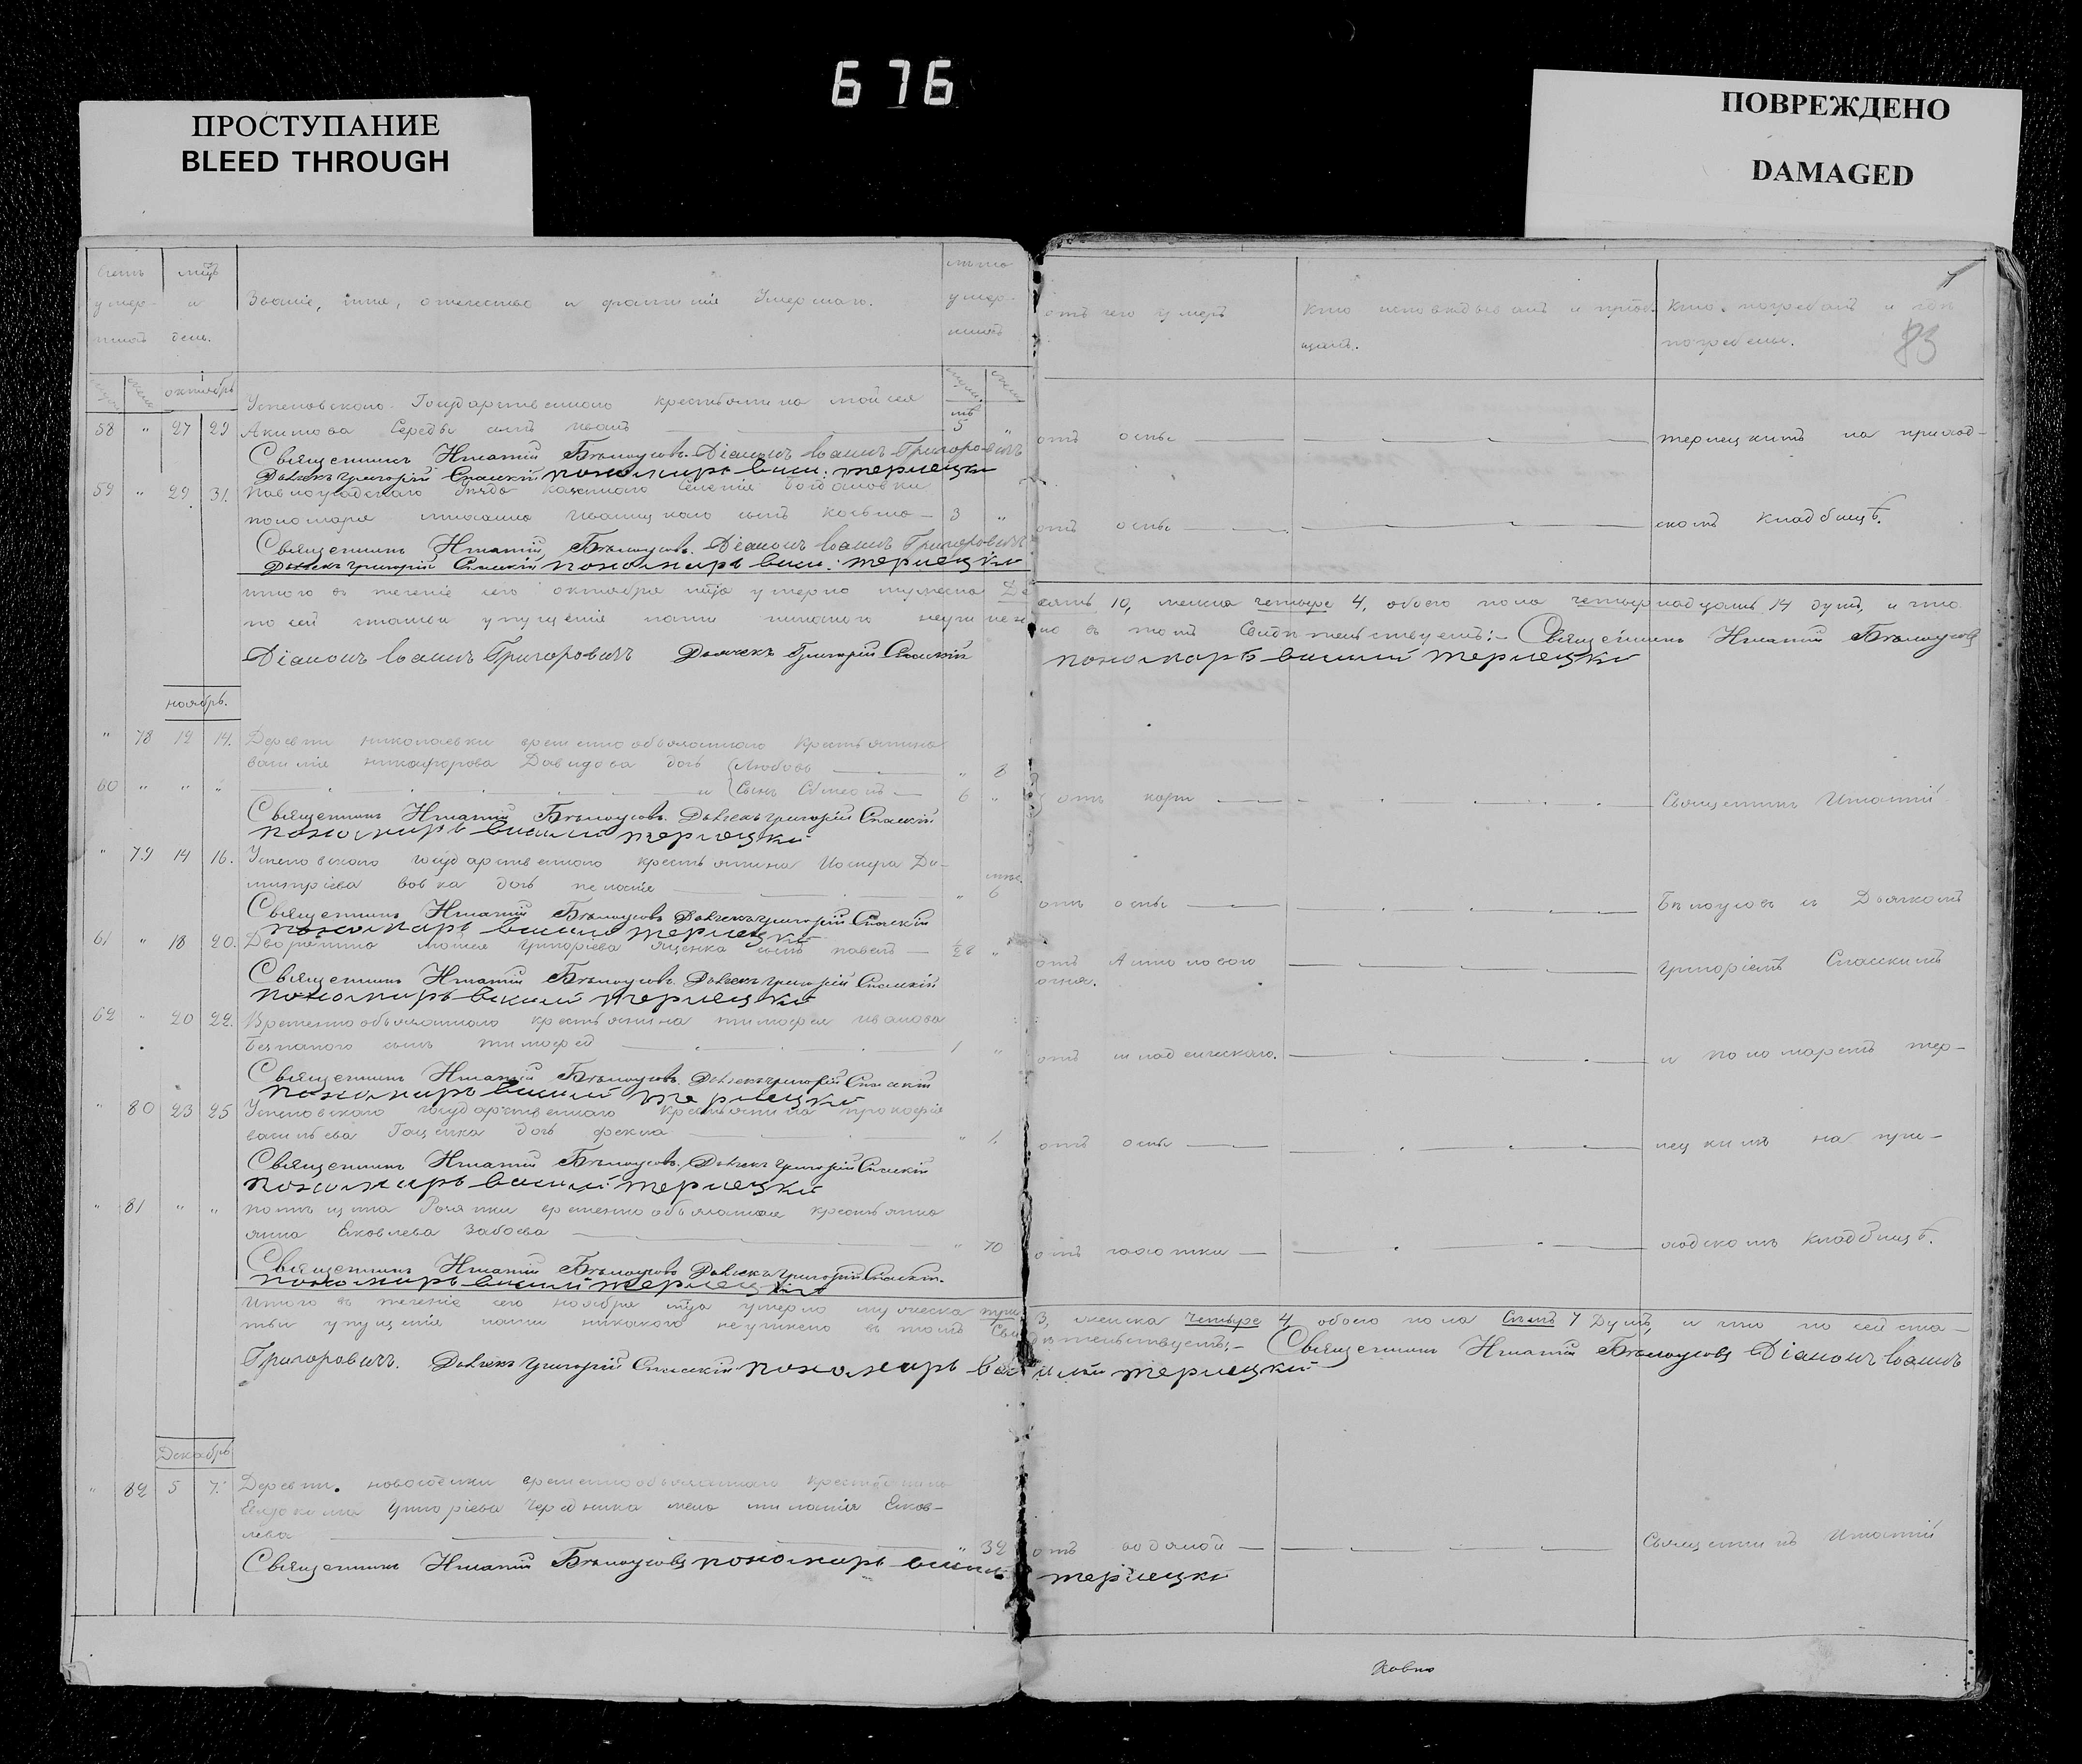 676
ПРОСТУПАНИЕ
BLEED THROUGH
ПОВРЕЖДЕНО
DAMAGED
Счетъ умер- шихъ
мцъ и день.
Званіе, имя, отчество и фамилія Умершаго.
лѣта умер- шихъ
отъ чего умеръ
Кто исповѣдывалъ и пріоб- щалъ.
Кто погребалъ и гдѣ погребены.
83
октябрь
Государственнаго крестьянина Мойсея
58 " 27 29 Акимова Середы сынъ Иванъ 5 "
отъ оспы
терлецкимъ на приход-
Священникъ Игнатій Бѣлоусовъ. Діаконъ Іоаннъ Григоровичъ
Дьячекъ Григорій Спасскій пономарь васил. терлецки
59 " 29 31. Павлоградскаго уѣзда казеннаго селенія Богдановки
пономаря сынъ Косьма 3 "
отъ оспы
скомъ кладбищѣ.
Священникъ Игнатій Бѣлоусовъ. Діаконъ Іоаннъ Григоровичъ
Дьячекъ Григорій Спасскій пономарь васил: терлецки
Итого въ теченіе сего октября мца умерло мужеска Де
сять 10, женска четыре 4, обоего пола четырнадцать 14 душъ, и что
по сей статьи упущенія нами никакого неучинен
но въ томъ свидѣтельствуемъ:- Священникъ Игнатій Бѣлоусовъ
Діаконъ Іоаннъ Григоровичъ Дьячекъ Григорій Спасскій
пономарь василий терлецки
ноябрь.
" 78 12 14. Деревни Николаевки временнообязаннаго крестьянина
василія никифорова Давидова дочь Любовь " 8
60 " " " и Сынъ Симеонъ 6 "
отъ кори
Священникъ Игнатій
Священникъ Игнатій Бѣлоусовъ. Дьячекъ Григорій Спасскій
пономарь василий терлецки
" 79 14 16. государственнаго крестьянина Іосифа Ди-
митріева вовка дочь пелагія " мѣс. 6
отъ оспы
Бѣлоусовъ съ Дьячкомъ
Священникъ Игнатій Бѣлоусовъ Дьячекъ Григорій Спасскій
пономарь василий терлецки
61 " 18 20. Дворянина Григоріева Яценка сынъ павелъ "
отъ Антонового огня.
григоріемъ Спасскимъ
Священникъ Игнатій Бѣлоусовъ. Дьячекъ Григорій Спасскій
пономарь василий терлецки
62 " 20 22. Временнообязаннаго крестьянина тимофея иванова
сынъ тимофей 1 "
отъ младенческаго.
и пономаремъ тер-
Священникъ Игнатій Бѣлоусовъ. Дьячекъ Григорій Спасскій
пономарь василий терлецки
" 80 23 25 государственнаго крестьянина прокофія
васильева Гаценка дочь фекла " 1.
отъ оспы
лецкимъ на при-
Священникъ Игнатій Бѣлоусовъ. Дьячекъ Григорій Спасскій
пономарь васили терлецки
" 81 " " временнообязанная крестьянка
анна Яковлева Забоева " 70
отъ чахотки
ходскомъ кладбищѣ.
Священникъ Игнатій Бѣлоусовъ Дьячекъ Григорій Спасскій.
пономарь василий терлецки
Итого въ теченіе сего ноября мца умерло мужеска три
3, женска четыре 4, обоего пола Семь 7 Душъ, и что по сей ста-
тьи упущенія нами никакого неучинено въ томъ Сви
дѣтельствуемъ:- Священникъ Игнатій Бѣлоусовъ Діаконъ Іоаннъ
Григоровичъ. Дьячекъ Григорій Спасскій пономарь василий терлецкий
Декабрь
" 82 5 7. Деревни новоселки временнообязаннаго крестьянина
Евдокима Григоріева Чередника жена Яков-
лева " 32
отъ водяной
Священникъ Игнатій
Священникъ Игнатій Бѣлоусовъ пономарь василий терлецки